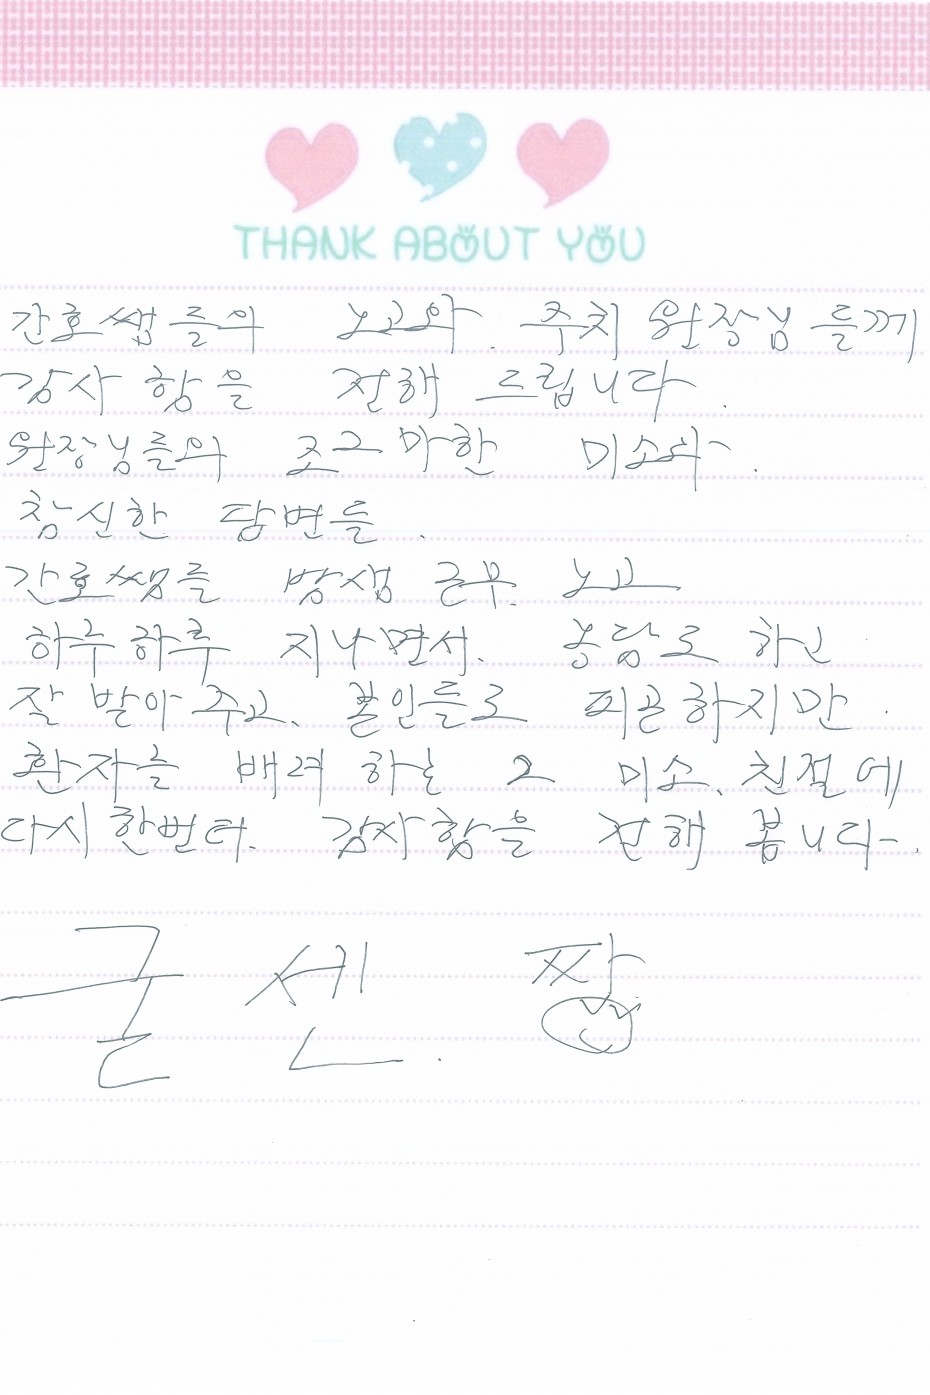 THANK ABOUT YOU
간호쌤들의 노고와. 주치 원장님들께
감사함을 전해 드립니다.
원장님들의 조그마한 미소와.
참신한 답변들.
간호쌤들 밤샘 근무. 노고
하루하루 지나면서. 농담도 하고
잘 받아주고. 본인들도 피곤하지만.
환자를 배려하는 그 미소. 친절에
다시한번더. 감사함을 전해 봅니다.
굳센. 짱